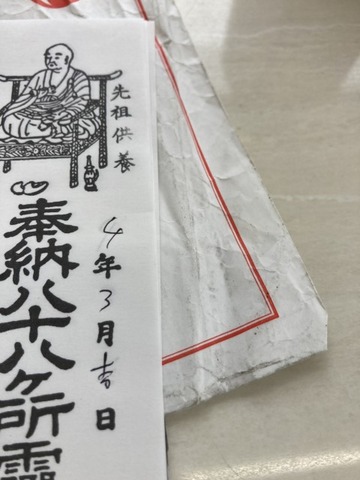 先祖供養
4年3月吉日
奉納八十八ヶ所霊